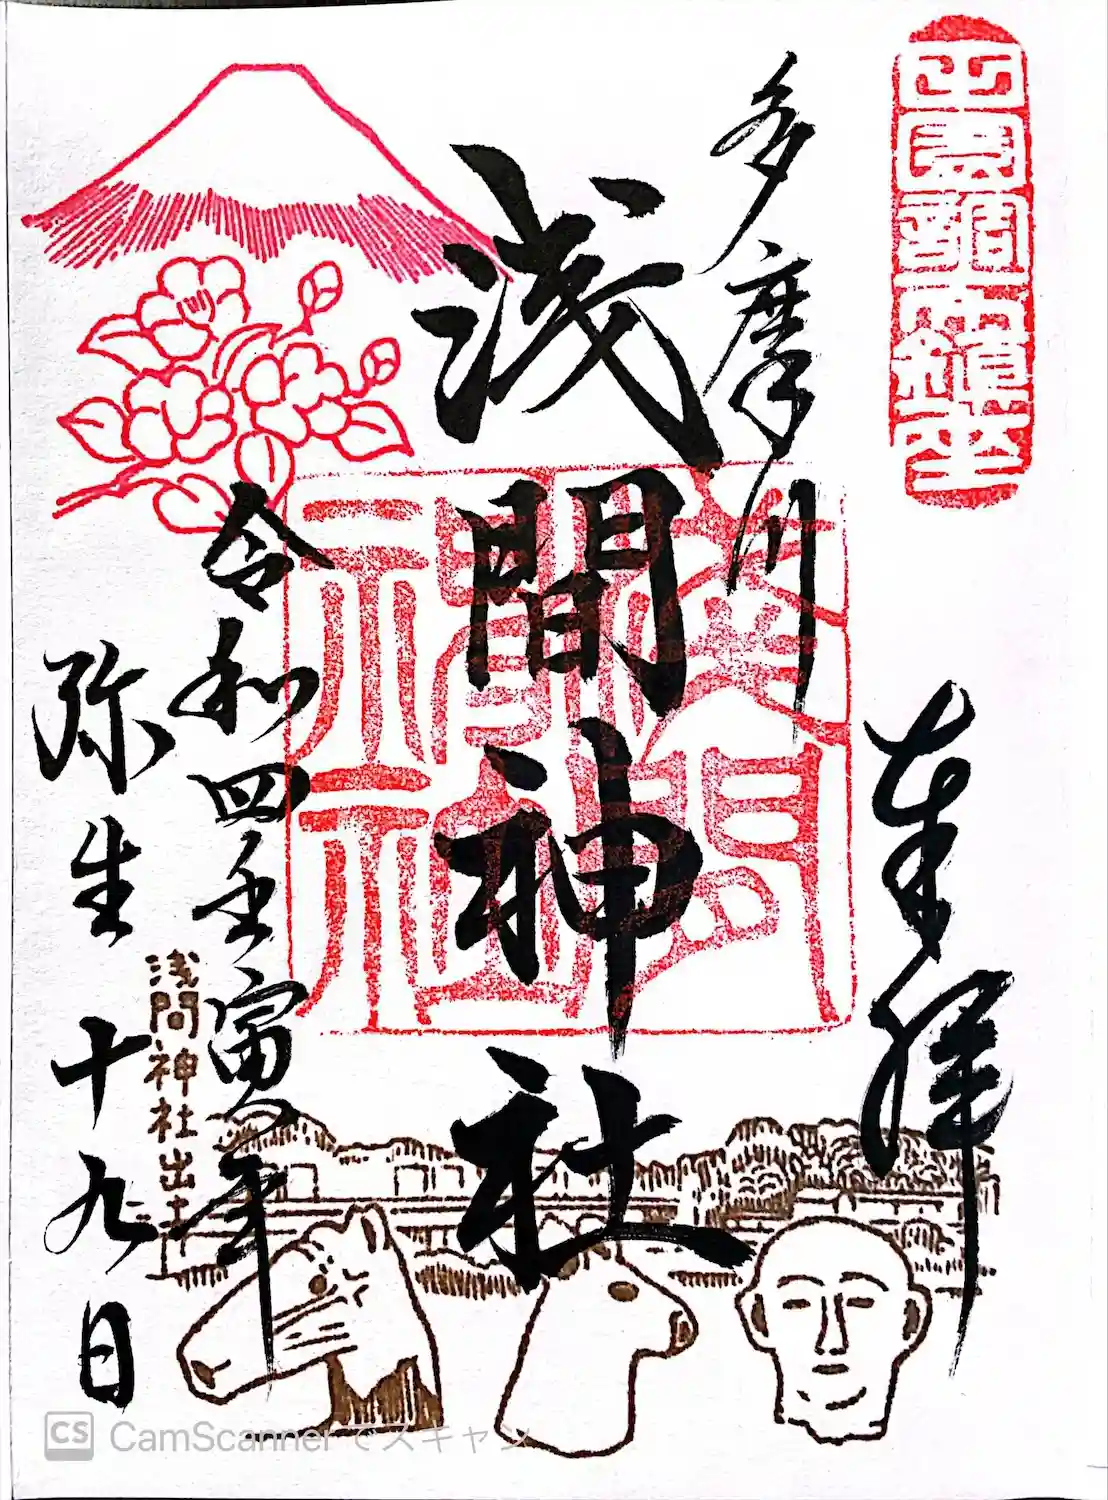 田園調布鎮座
奉拝
多摩川
浅間神社
淺間神社
令和四壬寅年
弥生十九日
浅間神社出土
CS CamScannerでスキャン